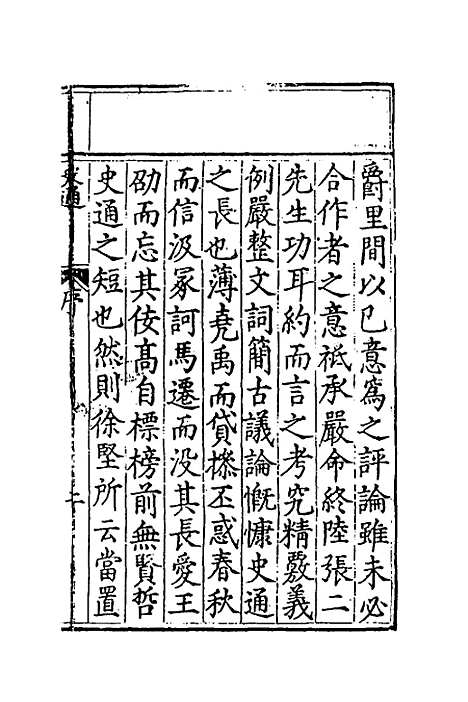 爵里間以已意寫之評論雖未必
合作者之意祗承嚴命終陸張二
先生功耳約而言之考究精覈義
例嚴整文詞簡古議論慨慷史通
之長也薄堯禹而貸操丕惑春秋
而信汲冢訶馬遷而没其長愛王
劭而忘其佞高自標榜前無賢哲
史通之短也然則徐堅所云當置
史通
序
二